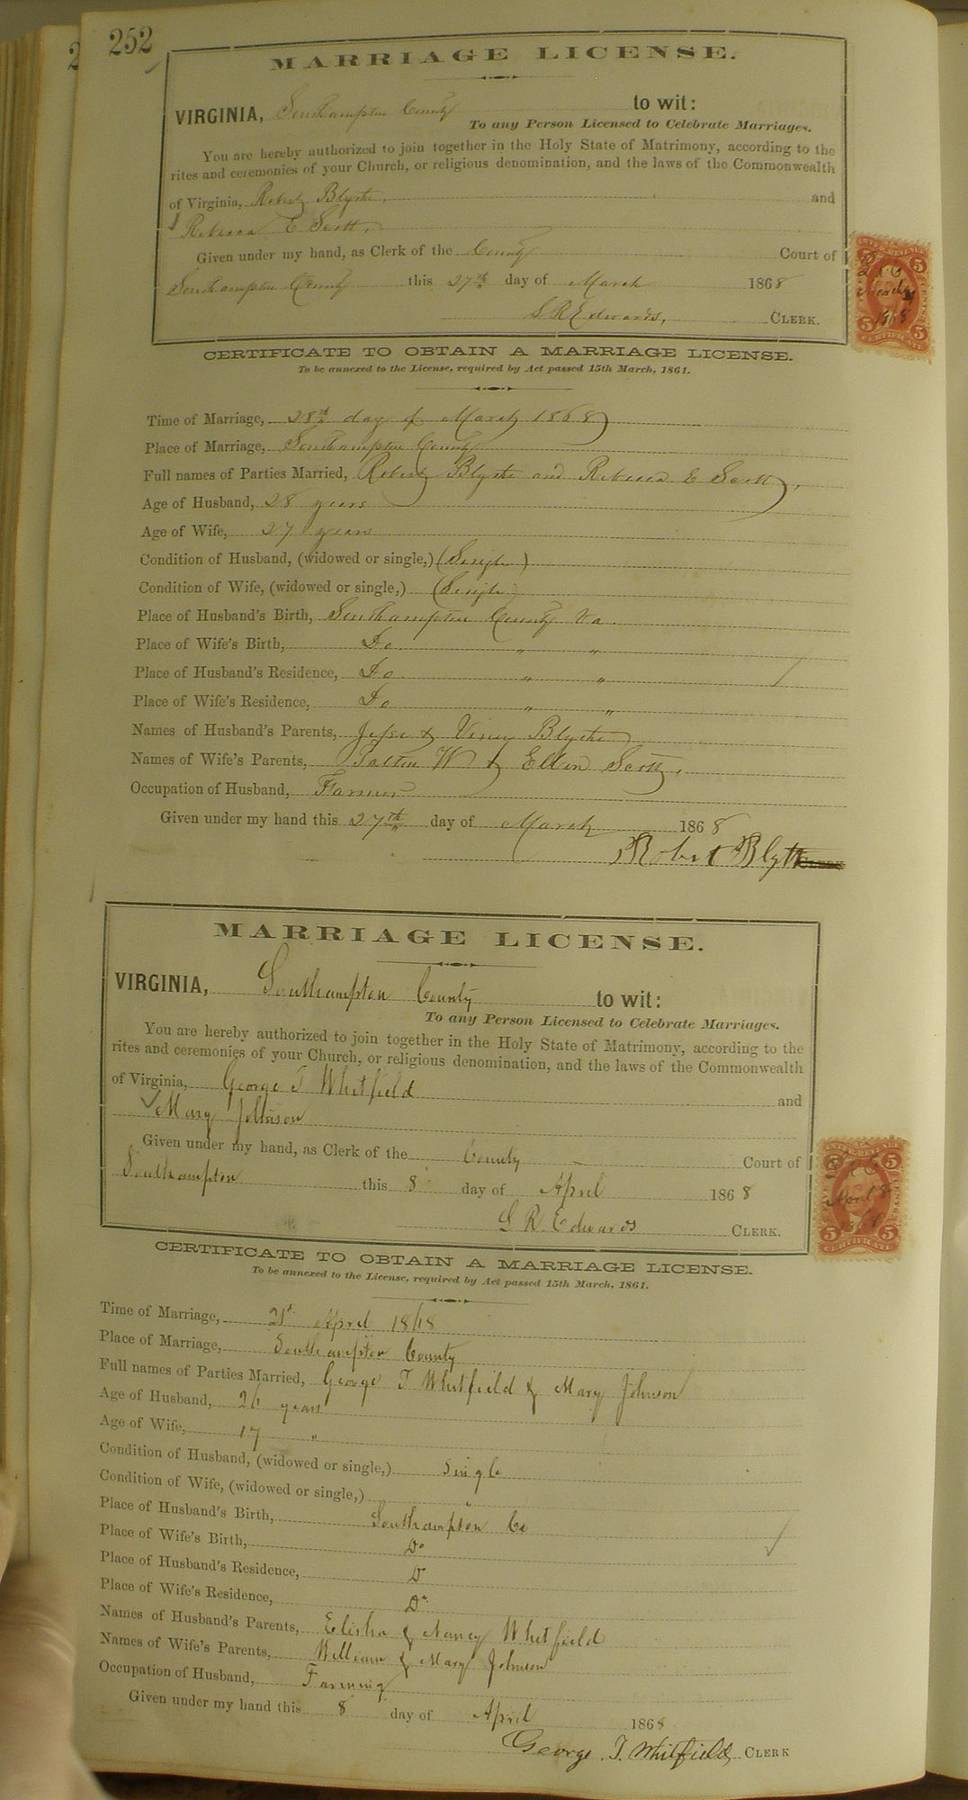 252
MARRIAGE LICENSE.
VIRGINIA, Southampton County to wit:
To any Person Licensed to Celebrate Marriages.
You are hereby authorized to join together in the Holy State of Matrimony, according to the
rites and ceremonies of your Church, or religious denomination, and the laws of the Commonwealth
of Virginia, Robert Blythe and
Rebecca E Scott,
Given under my hand, as Clerk of the County Court of
Southampton County this 27th day of March 1868
S R Edwards, CLERK.
CERTIFICATE TO OBTAIN A MARRIAGE LICENSE.
To be annexed to the License, required by Act passed 15th March, 1861.
Time of Marriage, 28th day of March 1868
Place of Marriage, Southampton County
Full names of Parties Married, Robert Blythe and Rebecca E Scott,
Age of Husband, 28 years
Age of Wife, 27 years
Condition of Husband, (widowed or single,) (Single)
Condition of Wife, (widowed or single,) (Single)
Place of Husband's Birth, Southampton County Va.
Place of Wife's Birth, Do " "
Place of Husband's Residence, Do " "
Place of Wife's Residence, Do " "
Names of Husband's Parents, Jesse & Viney Blythe
Names of Wife's Parents, W & Ellen Scott,
Occupation of Husband, Farmer
Given under my hand this 27th day of March 1868
Robert Blythe
MARRIAGE LICENSE.
VIRGINIA, Southampton County to wit:
To any Person Licensed to Celebrate Marriages.
You are hereby authorized to join together in the Holy State of Matrimony, according to the
rites and ceremonies of your Church, or religious denomination, and the laws of the Commonwealth
of Virginia, George T Whitfield and
Mary Johnson
Given under my hand, as Clerk of the County Court of
Southampton this 8 day of April 1868
S R Edwards CLERK.
CERTIFICATE TO OBTAIN A MARRIAGE LICENSE.
To be annexed to the License, required by Act passed 15th March, 1861.
Time of Marriage, April 1868
Place of Marriage, Southampton County
Full names of Parties Married, George T Whitfield & Mary Johnson
Age of Husband, 26 years
Age of Wife, 17 "
Condition of Husband, (widowed or single,) Single
Condition of Wife, (widowed or single,) "
Place of Husband's Birth, Southampton Co
Place of Wife's Birth, Do
Place of Husband's Residence, Do
Place of Wife's Residence, Do
Names of Husband's Parents, Elisha & Nancy Whitfield
Names of Wife's Parents, William & Mary Johnson
Occupation of Husband, Farming
Given under my hand this 8 day of April 1868
George. T. Whitfield CLERK